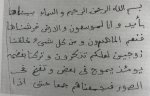 بسم الله الرحمن الرحيم والسماء بنيناها
بأييد وإنا لموسعون والأرض فرشناها
فنعم الماهدون ومن كل شيء خلقنا
زوجين لعلكم تذكرون وتركنا بعضهم
يومئذ يموج في بعض ونفخ في
الصور فجمعناهم جمعا